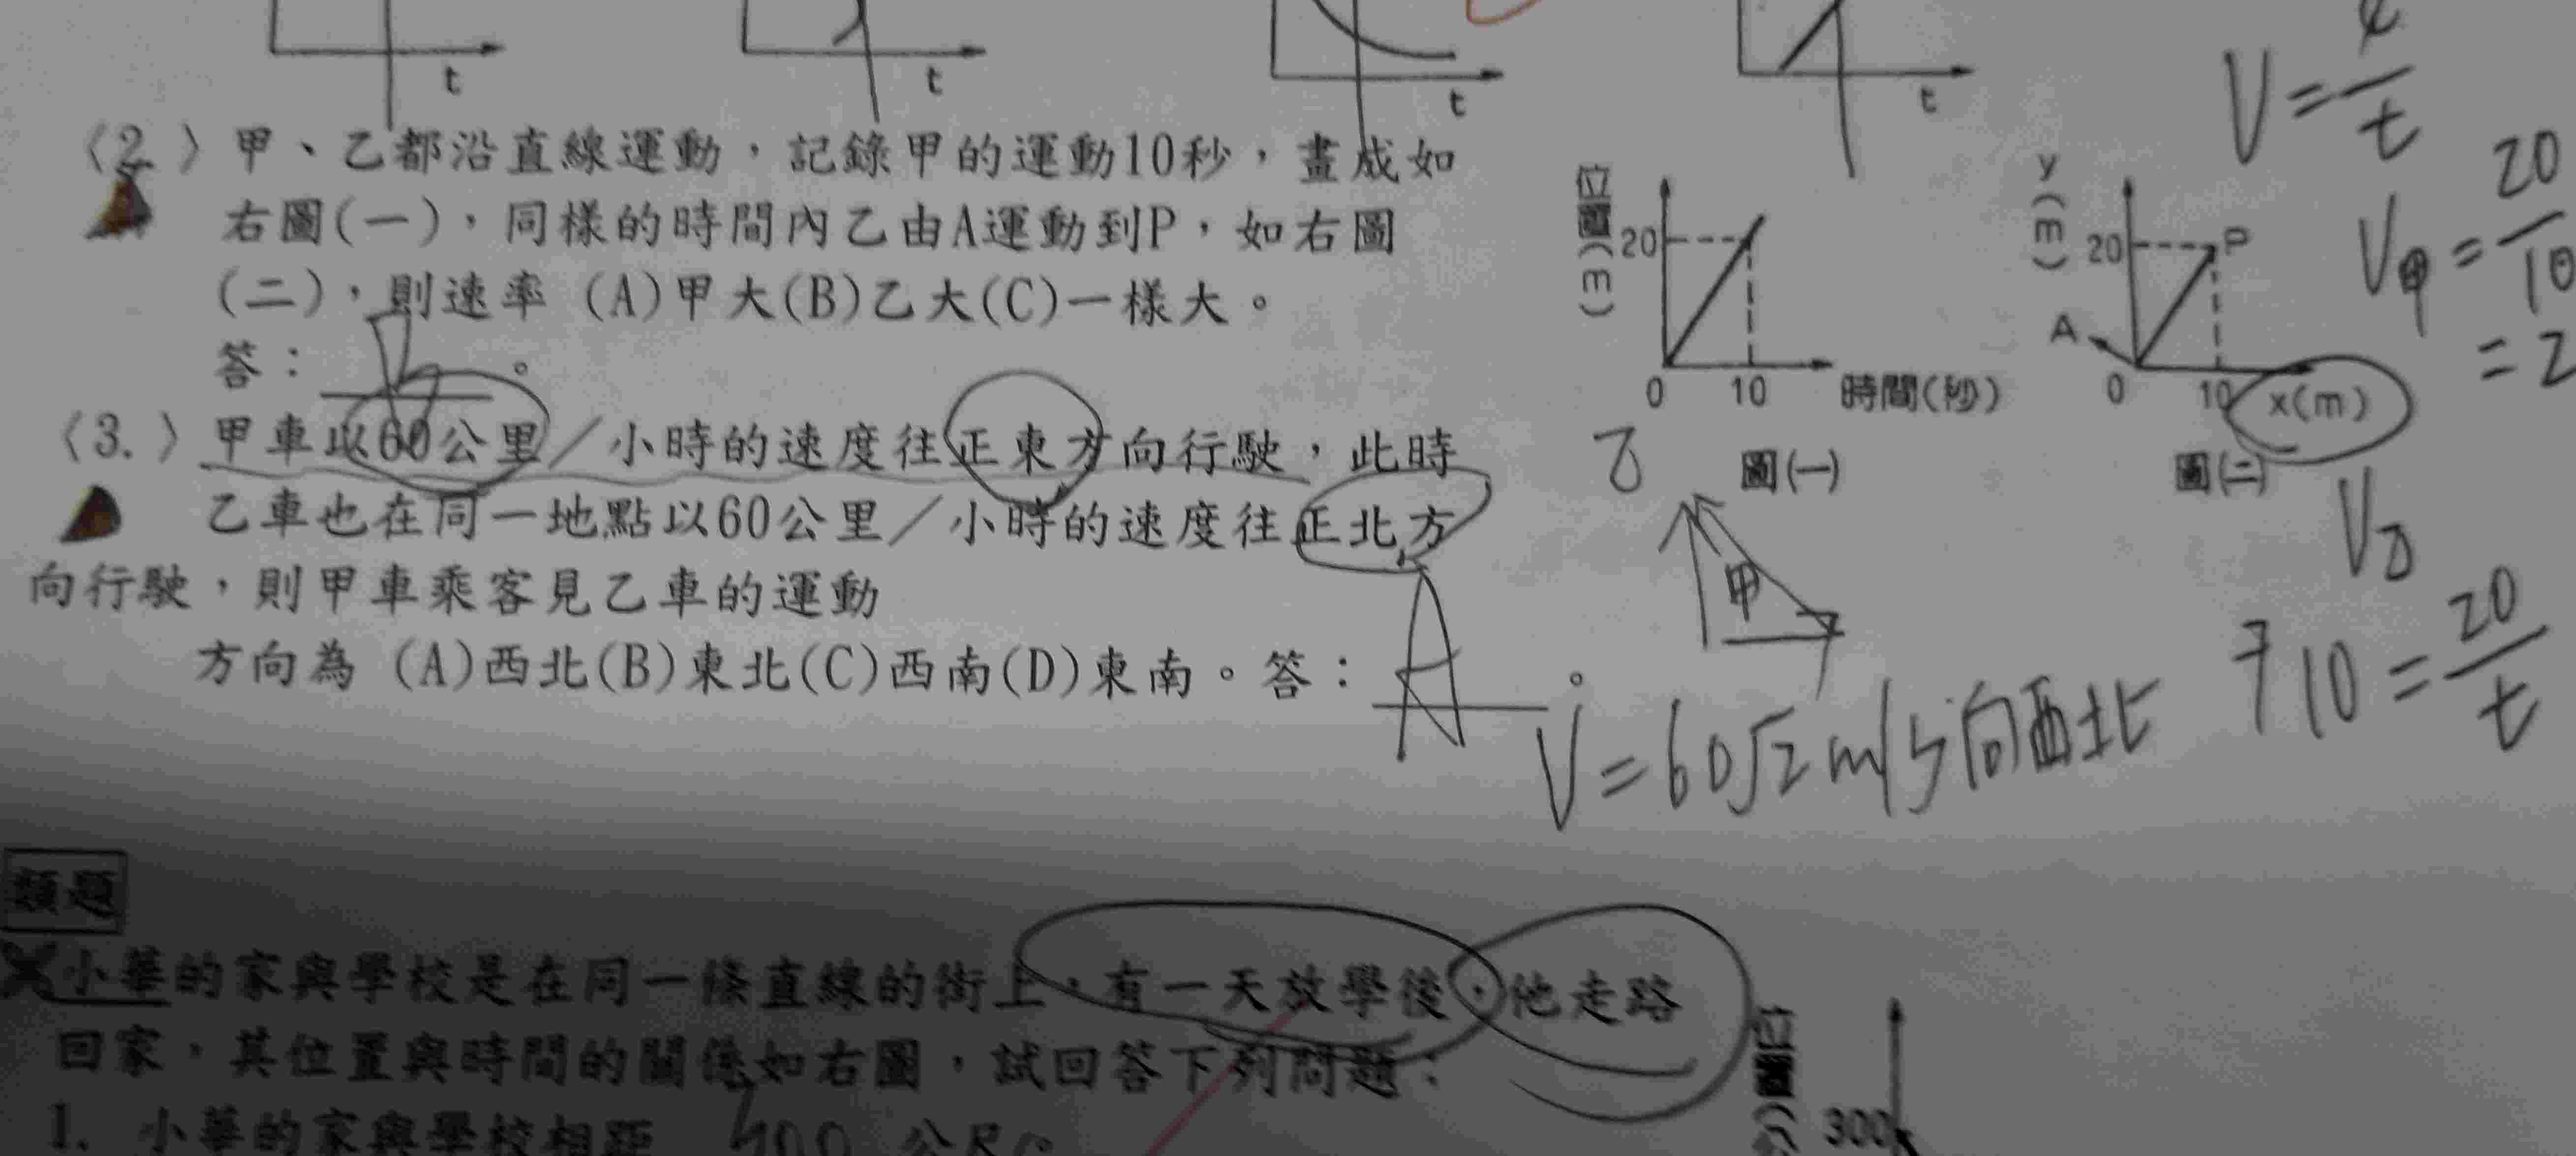 t
t
t
t
V=
t
〈2 〉甲、乙都沿直線運動，記錄甲的運動10秒，畫成如
右圖(一)，同樣的時間內乙由A運動到P，如右圖
(二)，則速率 (A)甲大(B)乙大(C)一樣大。
答：
。
位置(m)
20
0
10
時間(秒)
圖(一)
y(m)
20
P
A
0
10
x(m)
圖(二)
V甲=20/10
=2
〈3.〉甲車以60公里／小時的速度往正東方向行駛，此時
乙車也在同一地點以60公里／小時的速度往正北方
向行駛，則甲車乘客見乙車的運動
方向為 (A)西北(B)東北(C)西南(D)東南。答：A。
乙
甲
V乙
10=20/t
V=60√2 m/s向西北
類題
小華的家與學校是在同一條直線的街上，有一天放學後，他走路
回家，其位置與時間的關係如右圖，試回答下列問題：
1. 小華的家與學校相距 公尺。
位置
300